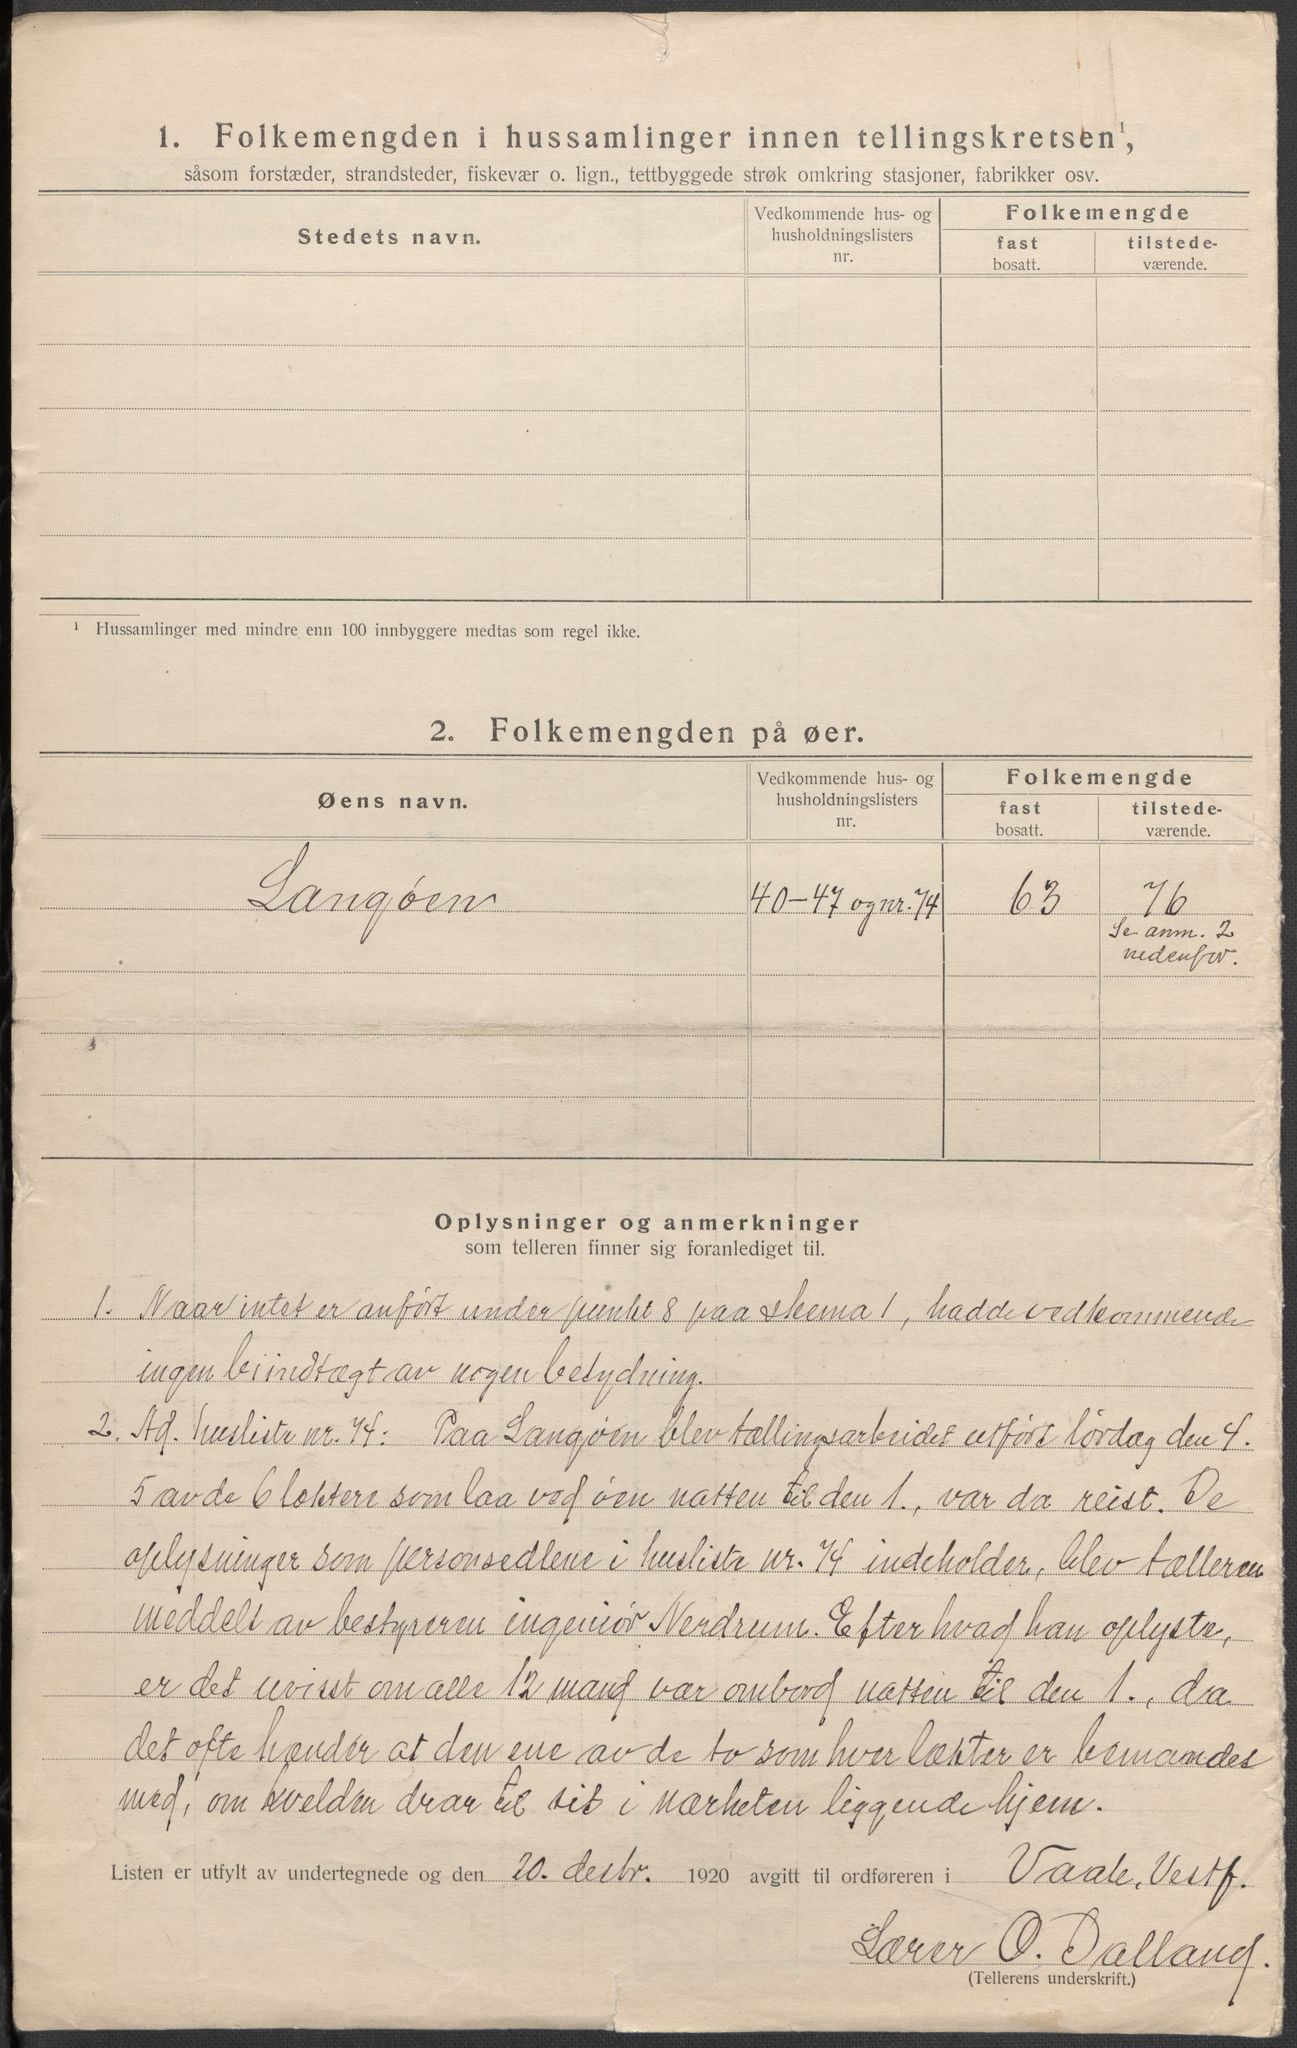 1. Folkemengden i hussamlinger innen tellingskretsen¹,
såsom forstæder, strandsteder, fiskevær o. lign., tettbyggede strøk omkring stasjoner, fabrikker osv.
Stedets navn.
Vedkommende hus- og
husholdningslisters
nr.
Folkemengde
fast
bosatt.
tilstede-
værende.
¹ Hussamlinger med mindre enn 100 innbyggere medtas som regel ikke.
2. Folkemengden på øer.
Øens navn.
Vedkommende hus- og
husholdningslisters
nr.
Folkemengde
fast
bosatt.
tilstede-
værende.
Langøen 40–47 og nr. 74 63 76
Se anm. 2
nedenfor.
Oplysninger og anmerkninger
som telleren finner sig foranlediget til.
1. Naar intet er anført under punkt 8 paa skema 1, hadde vedkommende
ingen biindtægt av nogen betydning.
2. Ad. husliste nr. 74: Paa Langøen blev tællingsarbeidet utført lørdag den 4.
5 av de 6 lektere som laa ved øen natten til den 1., var da reist. De
oplysninger som personsedlene i husliste nr. 74 indeholder, blev tælleren
meddelt av bestyreren ingeniør Nerdrum. Efter hvad han oplyste,
er det uvisst om alle 12 mand var ombord natten til den 1., da
det ofte hænder at den ene av de to som hver lekter er bemandet
med, om kvelden drar til sit i nærheten liggende hjem.
Listen er utfylt av undertegnede og den 20. desbr. 1920 avgitt til ordføreren i Vaale, Vestf.
Lærer O. Dalland.
(Tellerens underskrift.)